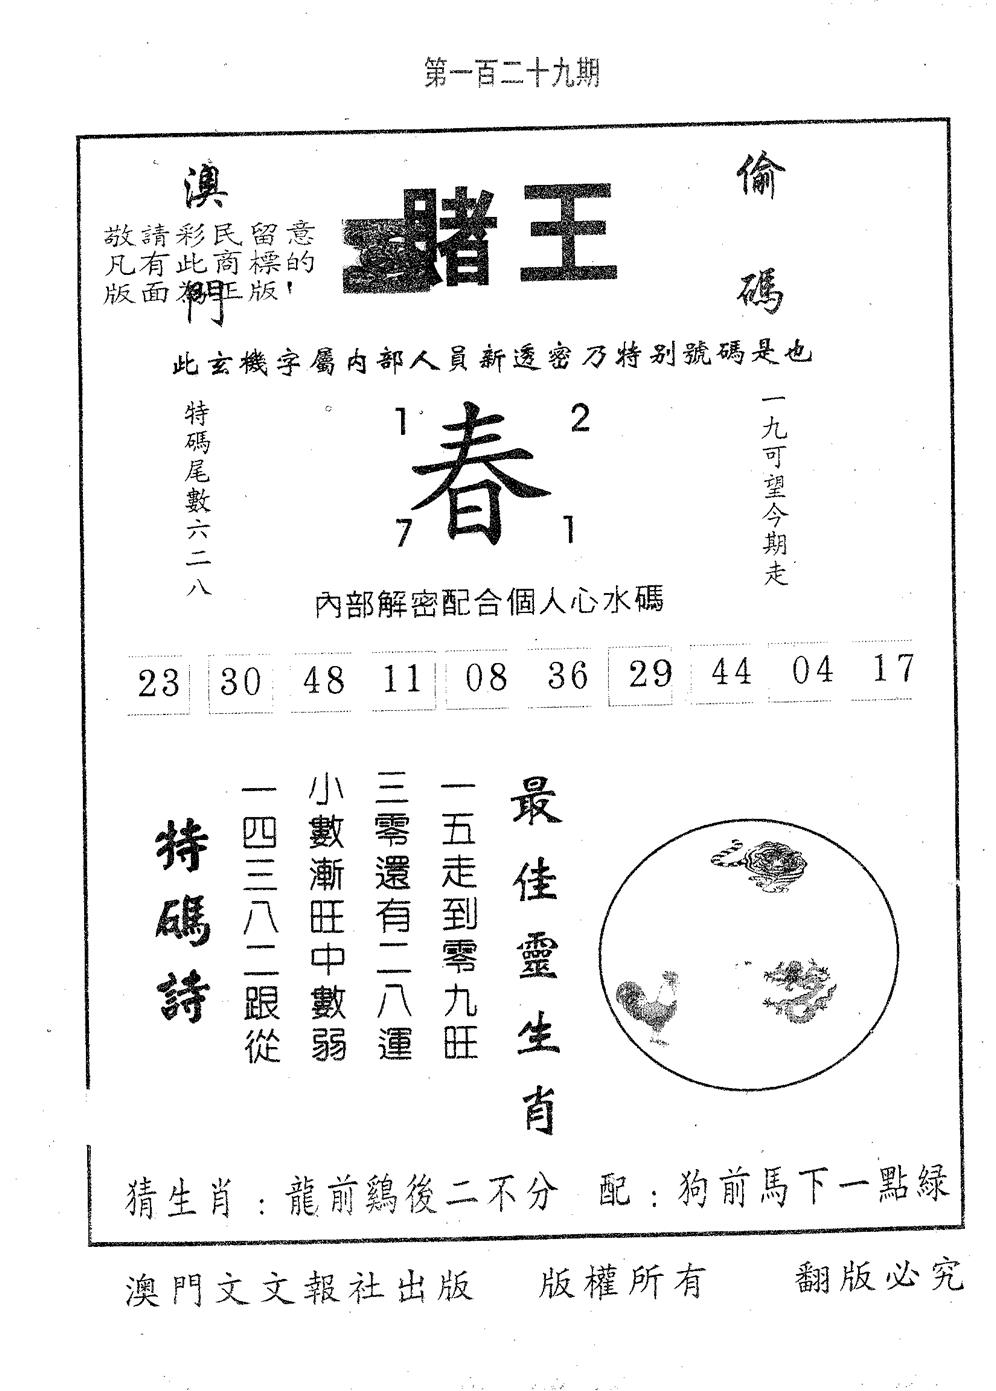 第一百二十九期
澳門
賭王
偷碼
敬請彩民留意
凡有此商標的
版面為正版！
此玄機字屬内部人員新透密乃特别號碼是也
特碼尾數六二八
1 2
春
7 1
一九可望今期走
内部解密配合個人心水碼
23 30 48 11 08 36 29 44 04 17
最佳靈生肖
一五走到零九旺
三零還有二八運
小數漸旺中數弱
一四三八二跟從
特碼詩
猜生肖：龍前鷄後二不分 配：狗前馬下一點緑
澳門文文報社出版 版權所有 翻版必究